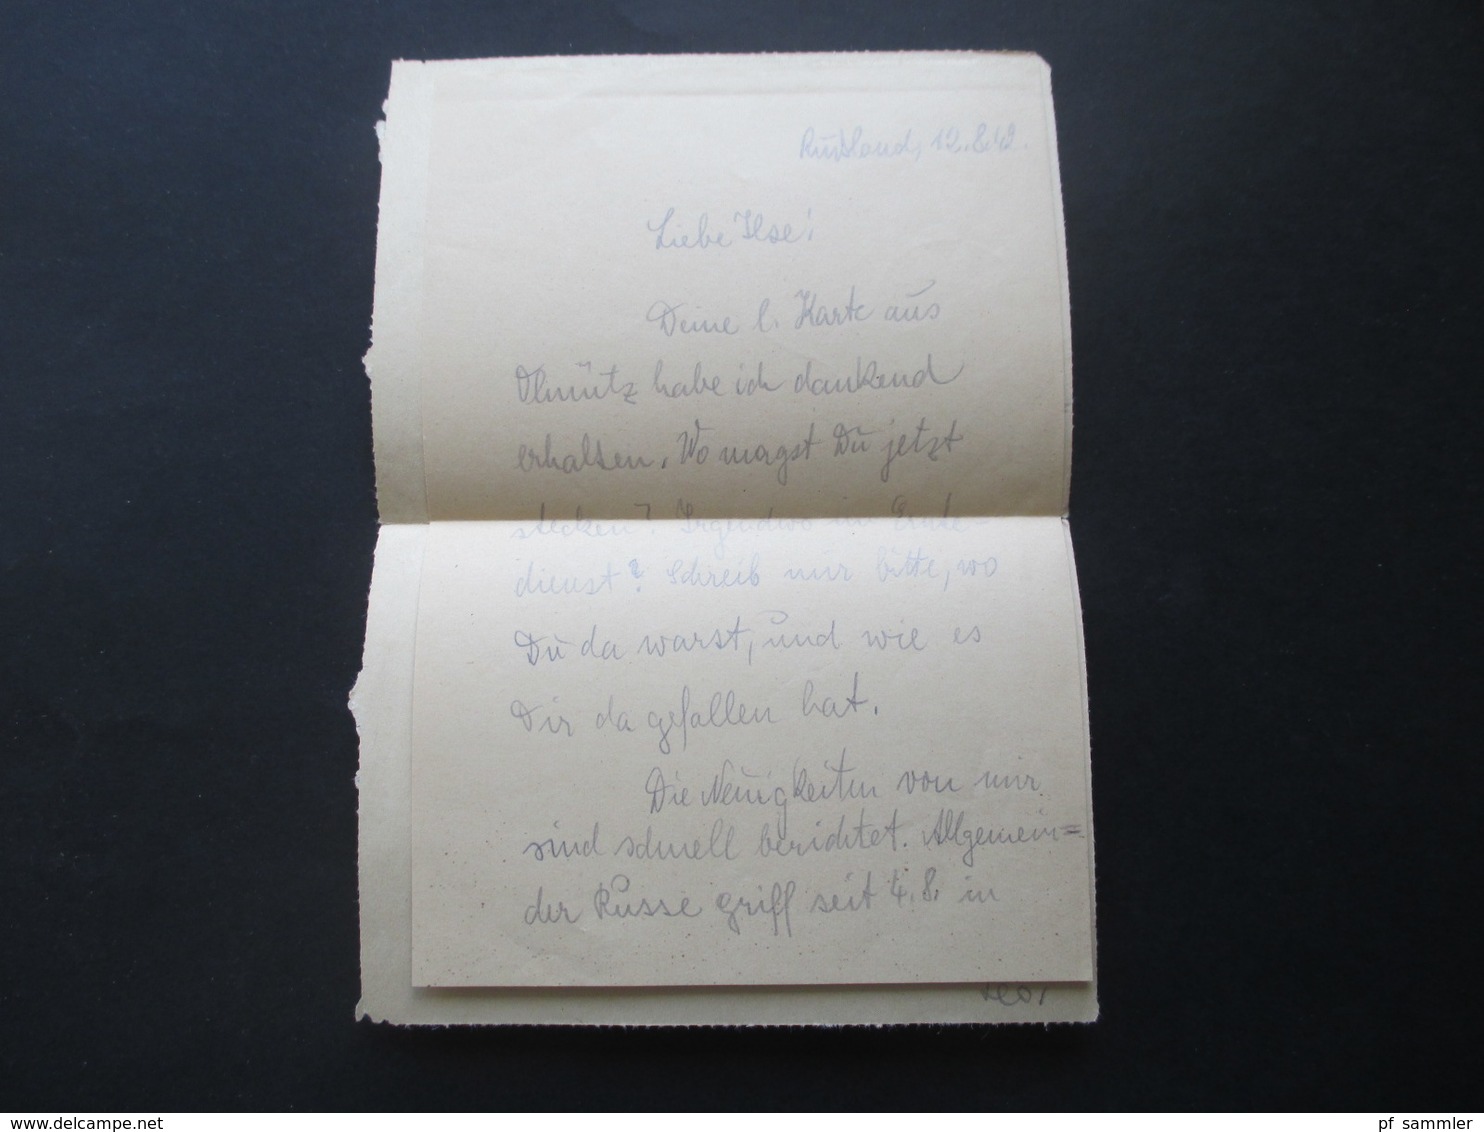 Rußland, 12.8.42.
Liebe Ilse!
Deine l. Karte aus
Olmütz habe ich dankend
erhalten. Wo magst Du jetzt
stecken? Irgendwo im Ernte-
dienst? Schreib mir bitte, wo
Du da warst, und wie es
Dir da gefallen hat.
Die Neuigkeiten von mir
sind schnell berichtet. Allgemein=
der Russe griff seit 4.8. in
Leo,
www.delcampe.net
pf_sammler